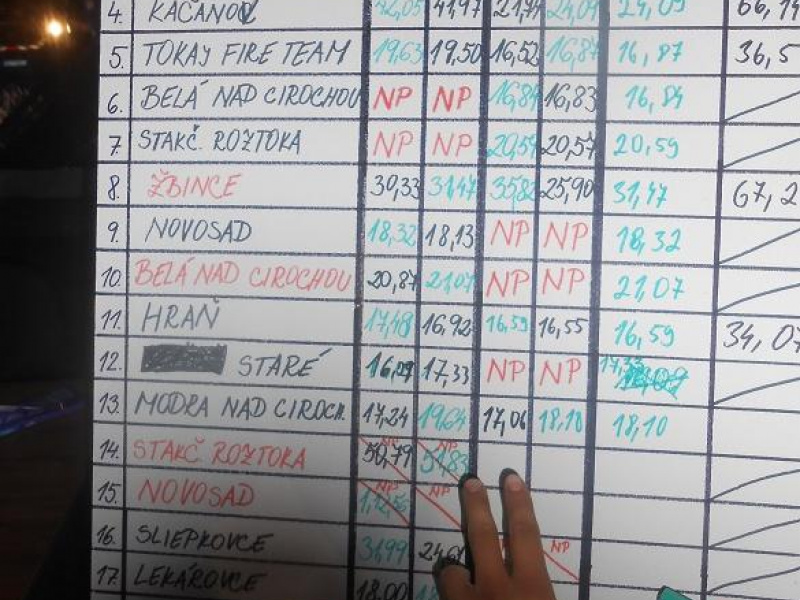 4. KAČANOV 42,05 41,97 21,74 24,09 24,09
5. TOKAY FIRE TEAM 19,63 19,50 16,52 16,87 16,87 36,5
6. BELÁ NAD CIROCHOU NP NP 16,84 16,83 16,84
7. STAKČ. ROZTOKA NP NP 20,59 20,57 20,59
8. ŽBINCE 30,33 31,47 35,82 25,90 31,47 67,2
9. NOVOSAD 18,32 18,13 NP NP 18,32
10. BELÁ NAD CIROCHOU 20,87 21,07 NP NP 21,07
11. HRAŇ 17,48 16,92 16,59 16,55 16,59 34,07
12. STARÉ 17,33 NP NP 17,33
13. MODRA NAD CIROCH. 17,24 19,64 17,06 18,10 18,10
14. STAKČ. ROZTOKA 50,79 NP 51,83 NP
15. NOVOSAD NP NP
16. SLIEPKOVCE 31,99 NP
17. LEKÁROVCE 18,00